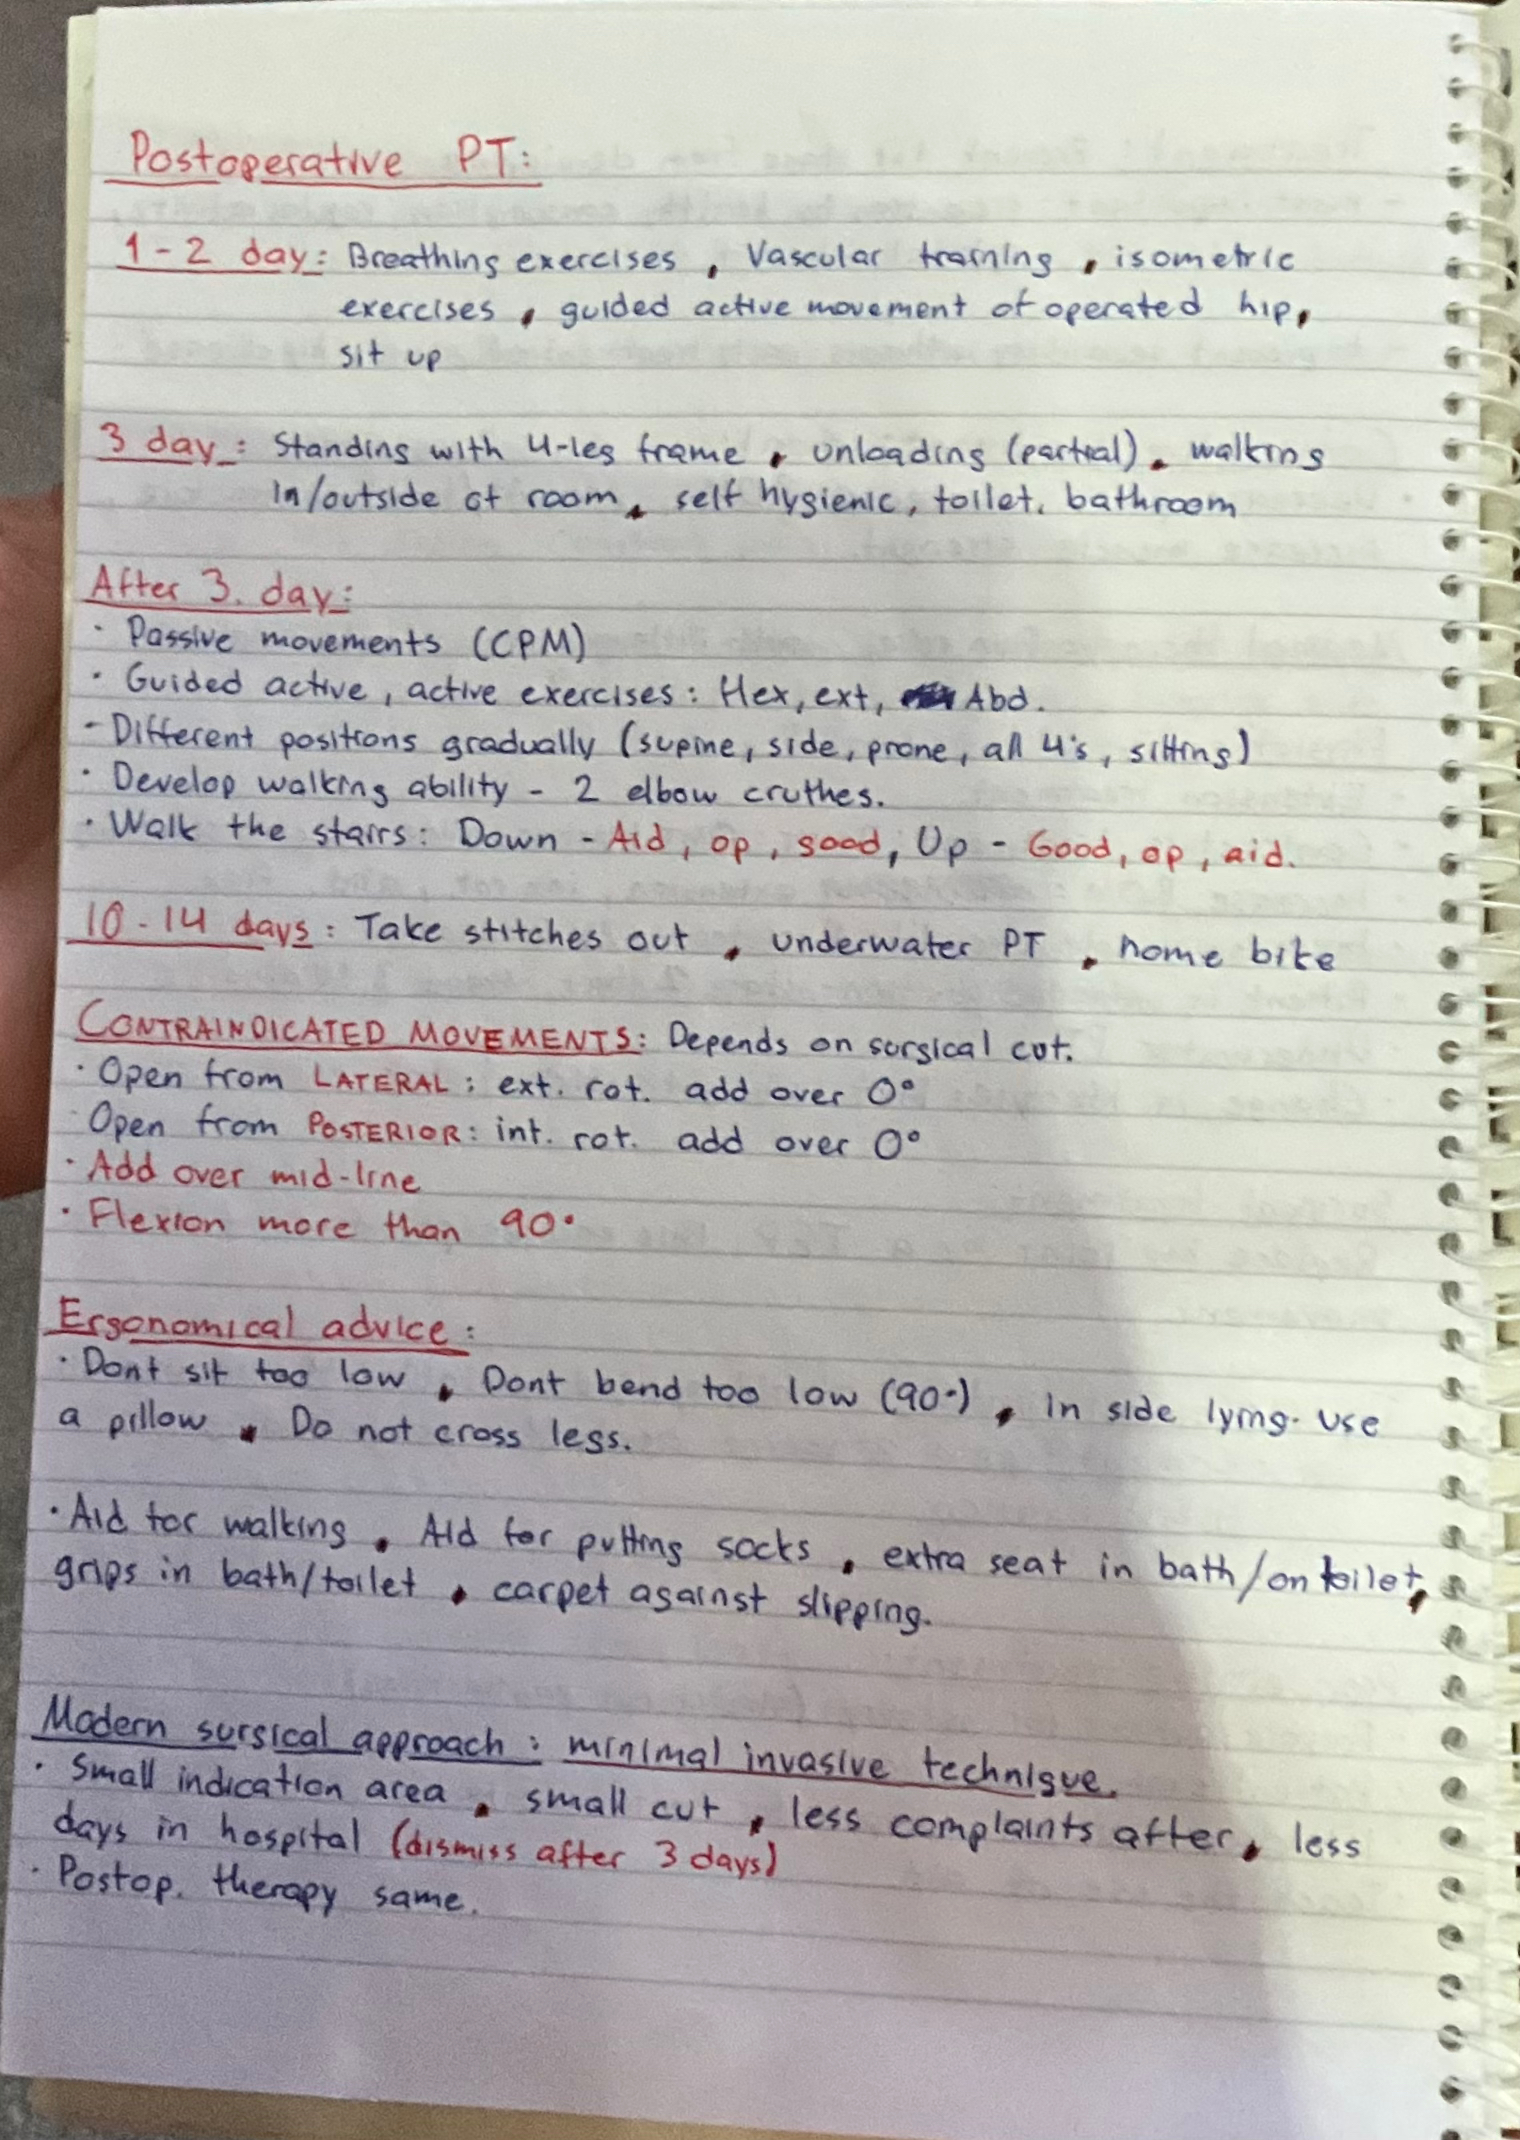 Postoperative PT:
1-2 day: Breathing exercises, Vascular training, isometric
exercises, guided active movement of operated hip,
sit up
3 day: Standing with 4-leg frame, unloading (partial), walking
in/outside of room, self hygienic, toilet, bathroom
After 3. day:
· Passive movements (CPM)
· Guided active, active exercises: flex, ext, Abd.
- Different positions gradually (supine, side, prone, all 4's, sitting)
· Develop walking ability - 2 elbow cruthes.
· Walk the stairs: Down - Aid, op, good, Up - Good, op, aid.
10-14 days: Take stitches out, underwater PT, home bike
CONTRAINDICATED MOVEMENTS: Depends on surgical cut.
· Open from LATERAL: ext. rot. add over 0°
Open from POSTERIOR: int. rot. add over 0°
· Add over mid-line
· Flexion more than 90°
Ergonomical advice:
· Dont sit too low, Dont bend too low (90°), in side lying. use
a pillow, Do not cross legs.
· Aid for walking, Aid for putting socks, extra seat in bath/on toilet,
grips in bath/toilet, carpet against slipping.
Modern surgical approach: minimal invasive technique.
· Small indication area, small cut, less complaints after, less
days in hospital (dismiss after 3 days)
· Postop. therapy same.